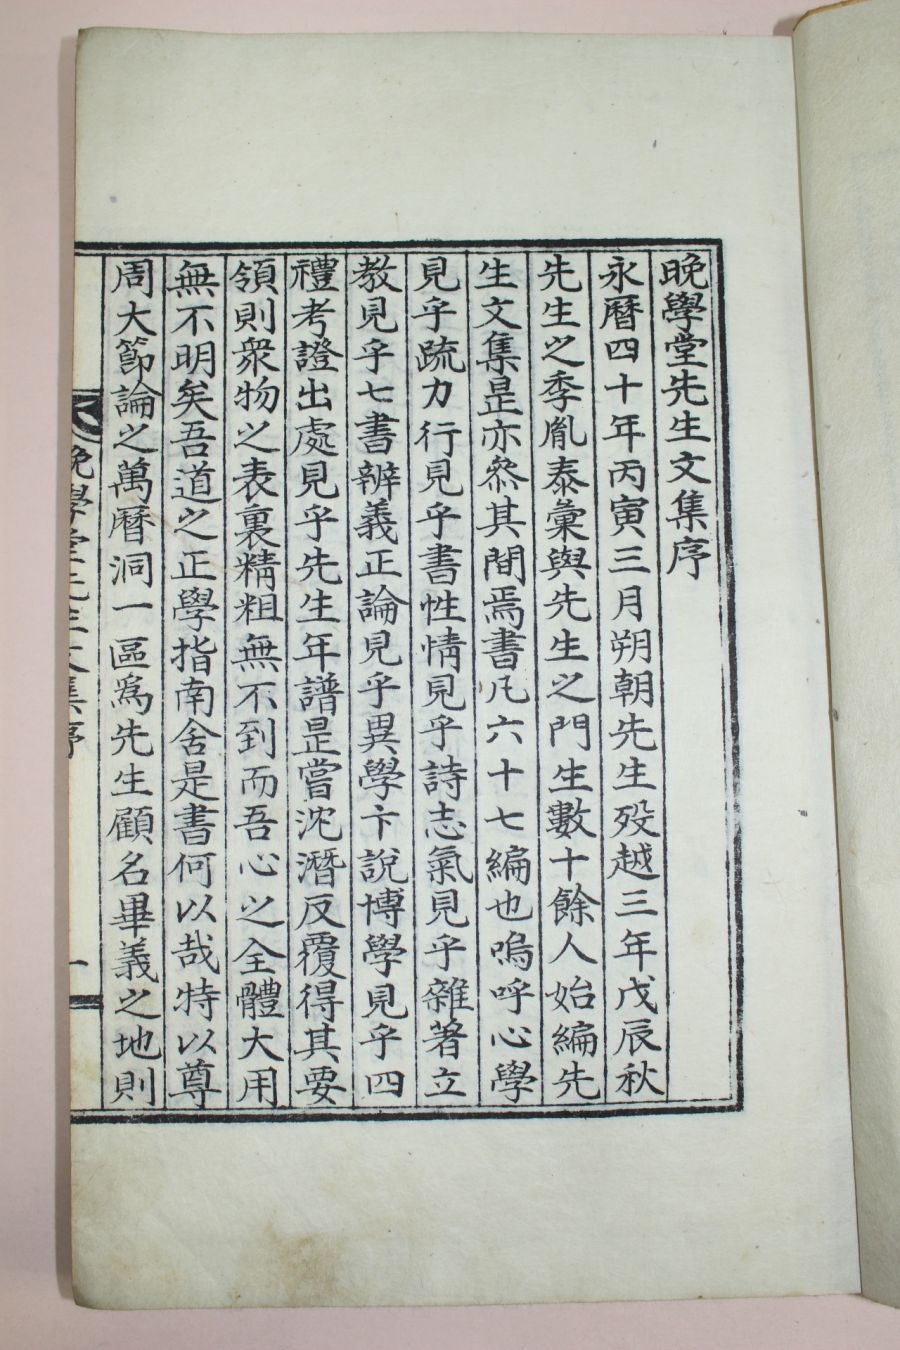 晚學堂先生文集序
永曆四十年丙寅三月朔朝先生歿越三年戊辰秋
先生之季胤泰彙與先生之門生數十餘人始編先
生文集是亦叅其間焉書凡六十七編也嗚呼心學
見乎疏力行見乎書性情見乎詩志氣見乎雜著立
教見乎七書辨義正論見乎異學卞說博學見乎四
禮考證出處見乎先生年譜昰嘗沈潛反覆得其要
領則衆物之表裏精粗無不到而吾心之全體大用
無不明矣吾道之正學指南舍是書何以哉特以尊
周大節論之萬曆洞一區爲先生顧名畢義之地則
晚學堂先生文集序
一